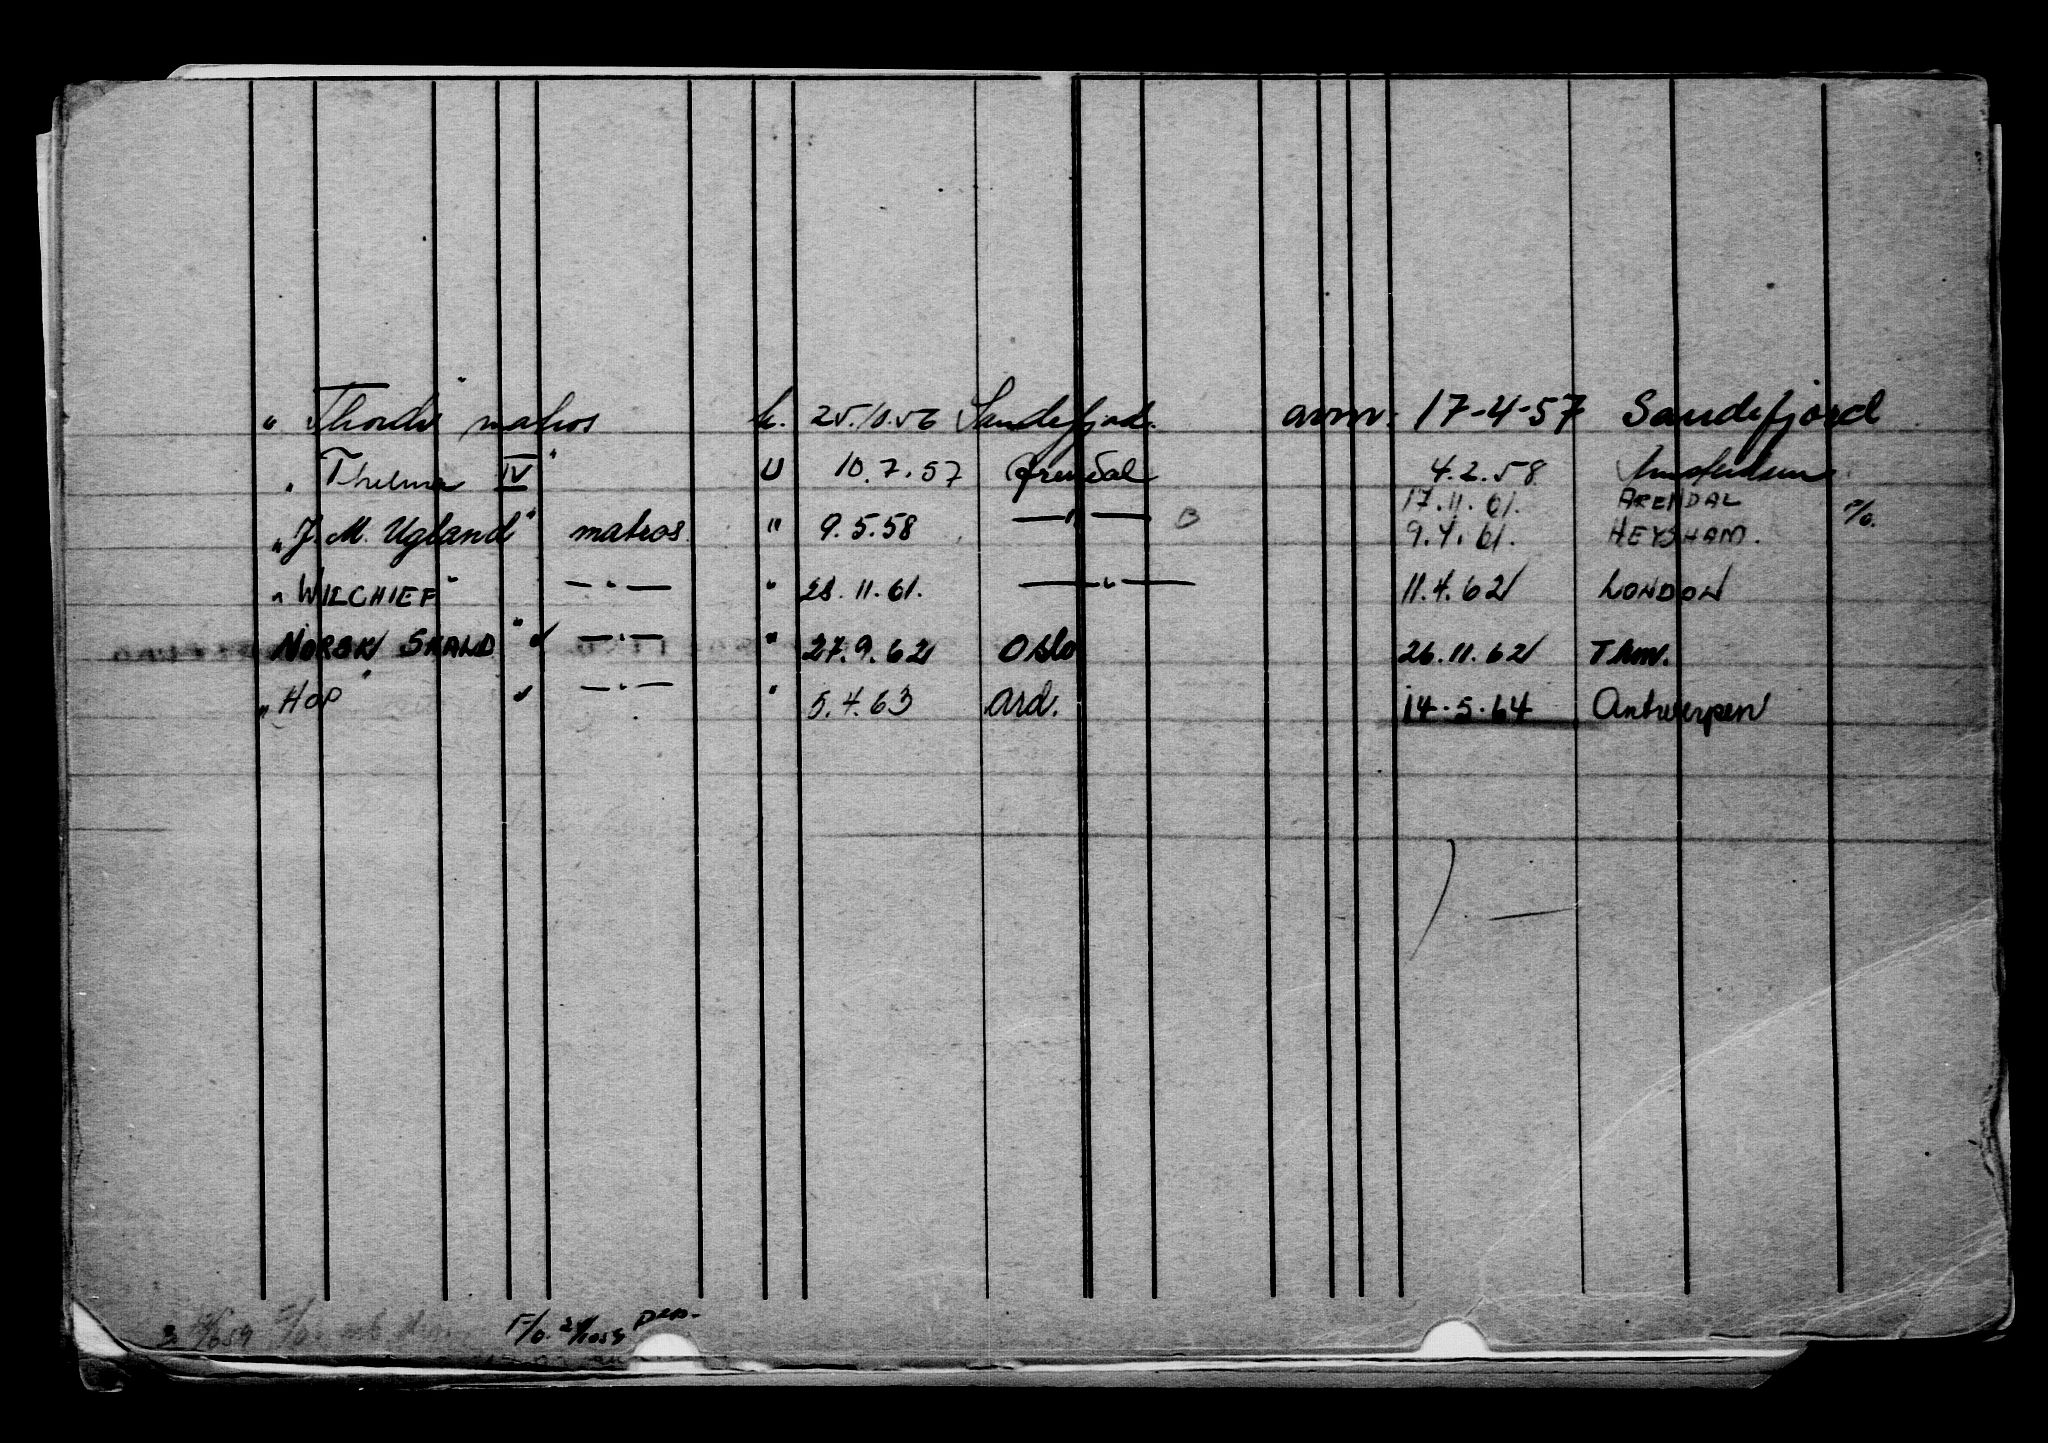 " Thordis " matros h. 25.10.56 Sandefjord. avm. 17-4-57 Sandefjord
" Thelma IV " U 10.7.57 Arendal 4.2.58 Amsterdam
17.11.61. ARENDAL
" J. M. Ugland " matros " 9.5.58 — " — B 9.4.61. HEYSHAM. F/o.
" WILCHIEF " — " — " 28.11.61. — " — 11.4.62 LONDON
NORSK SKALD " — " — " 27.9.62 Oslo 26.11.62 THM.
" HOP " — " — " 5.4.63 Ard. 14.5.64 Antwerpen
F/o.